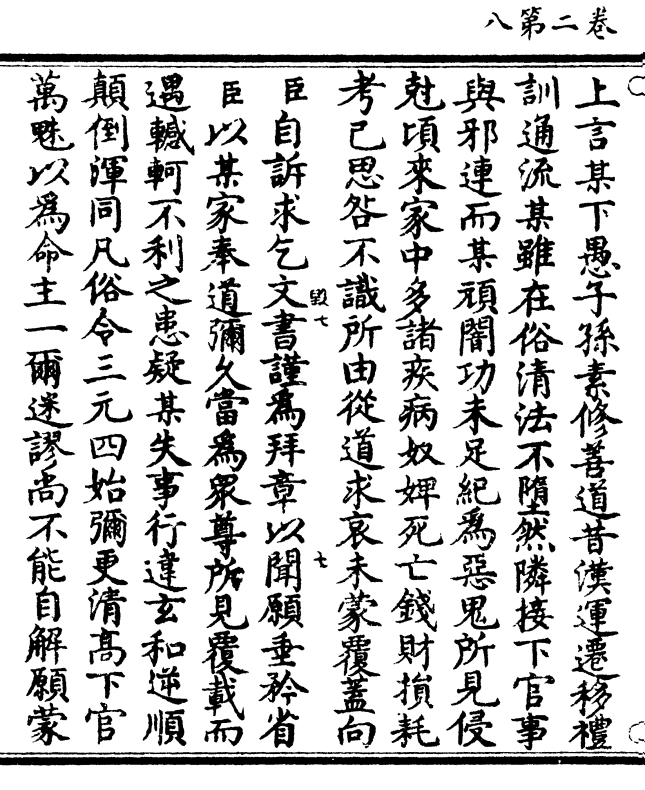 卷二第八
上言某下愚子孫素修善道昔漢運遷移禮
訓通流某雖在俗清法不墮然隣接下官事
與邪連而某頑闇功未足紀為惡鬼所見侵
尅頃來家中多諸疾病奴婢死亡錢財損耗
考己思咎不識所由從道求哀未蒙覆蓋向
臣自訴求乞文書謹為拜章以聞願垂矜省
毀七
七
臣以某家奉道彌久當為眾尊所見覆載而
遇轗軻不利之患疑某失事行違玄和逆順
顛倒渾同凡俗令三元四始彌更清高下官
萬魅以為命主一爾迷謬尚不能自解願蒙